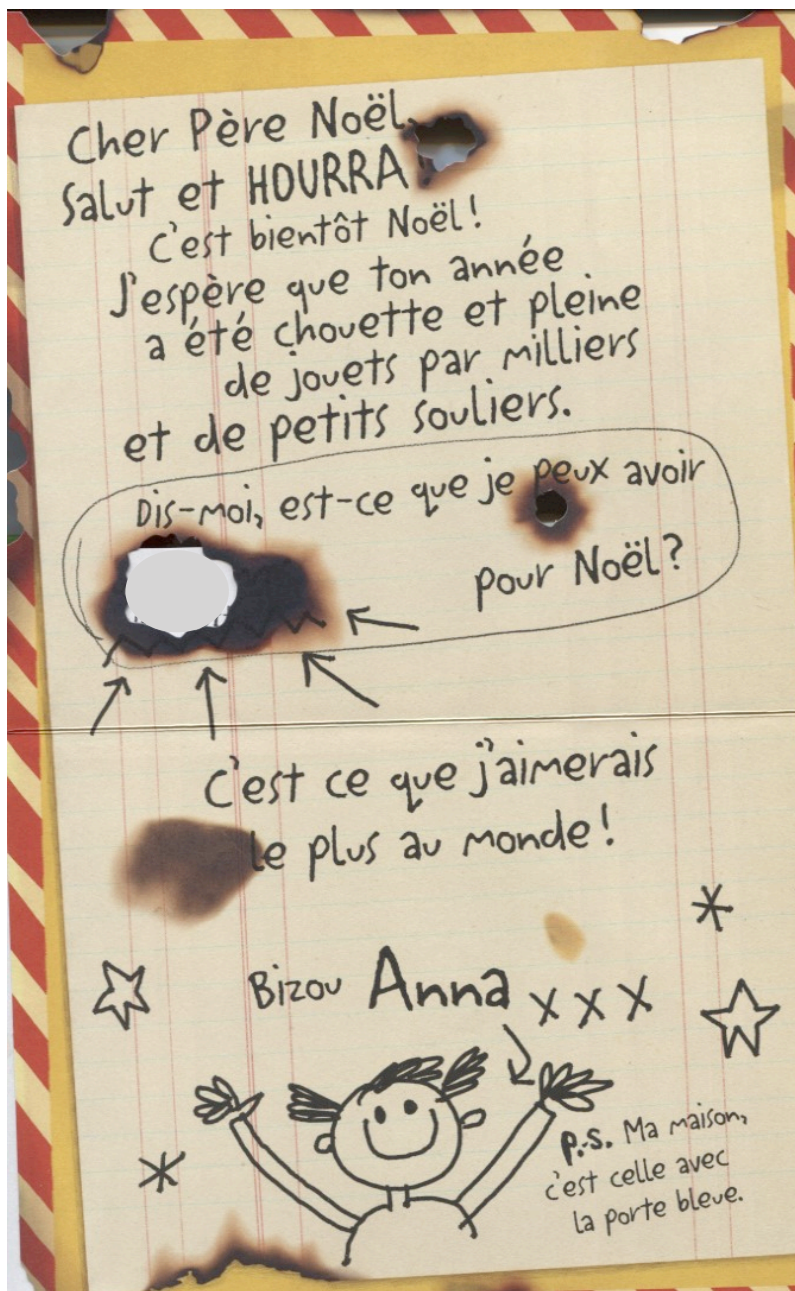 Cher Père Noël,
Salut et HOURRA
C'est bientôt Noël!
J'espère que ton année
a été chouette et pleine
de jouets par milliers
et de petits souliers.
Dis-moi, est-ce que je peux avoir
pour Noël?
C'est ce que j'aimerais
le plus au monde!
Bizou Anna x x x
P.-S. Ma maison,
c'est celle avec
la porte bleue.